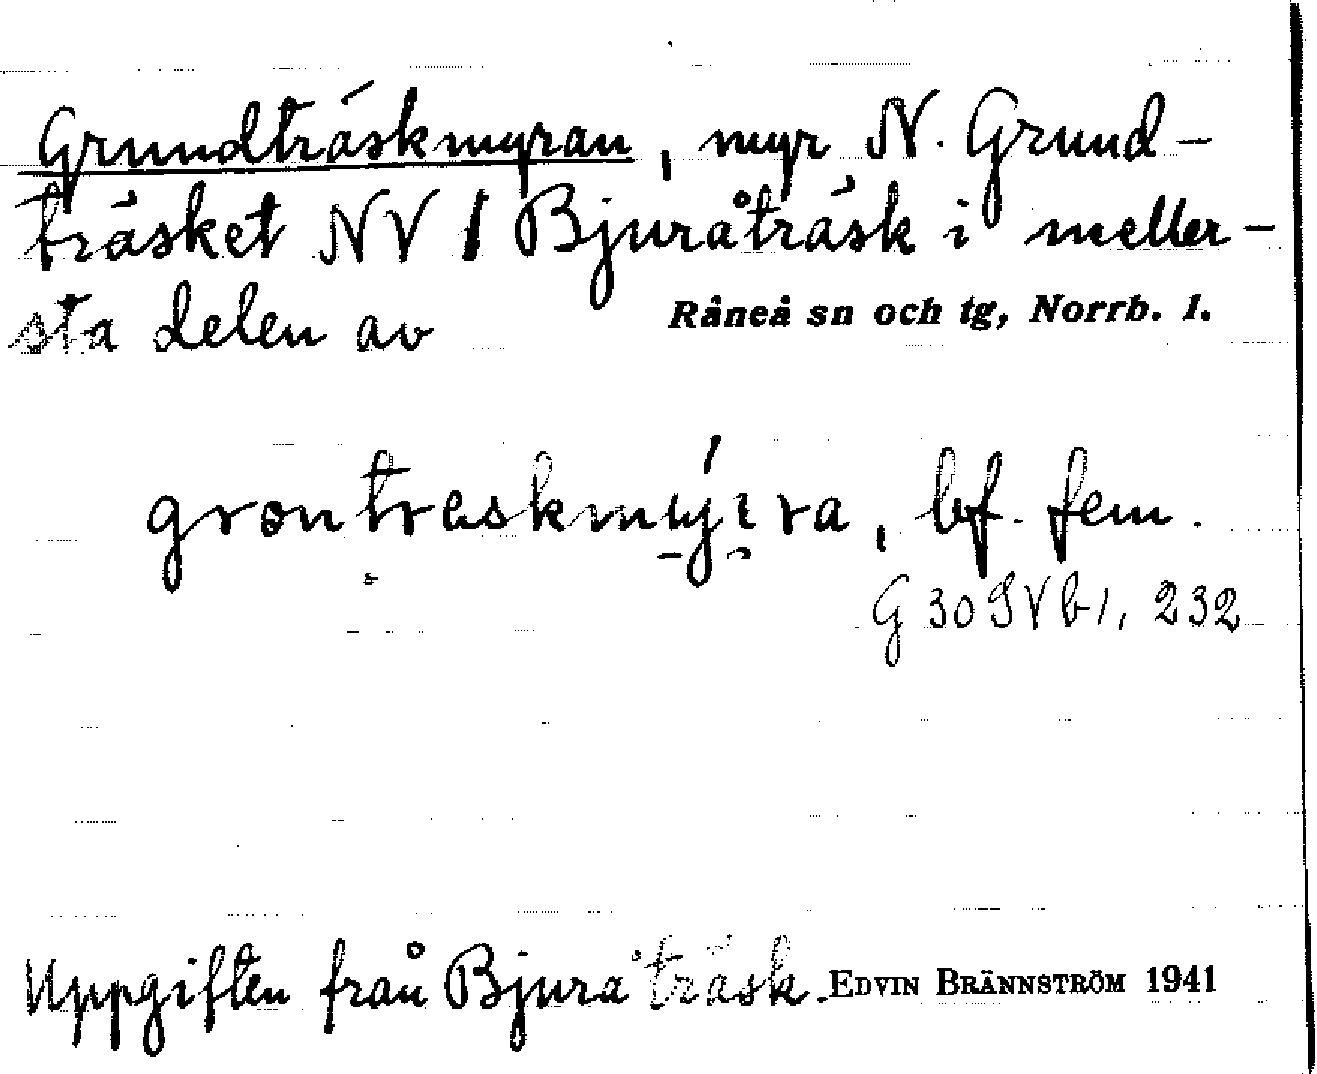 Grundträskmyran, myr N. Grund-
träsket NV / Bjuråträsk i meller-
sta delen av Råneå sn och tg, Norrb. l.
bf. fem.
G 30 SVb1, 232
Uppgiften från Bjuråträsk. EDVIN BRÄNNSTRÖM 1941